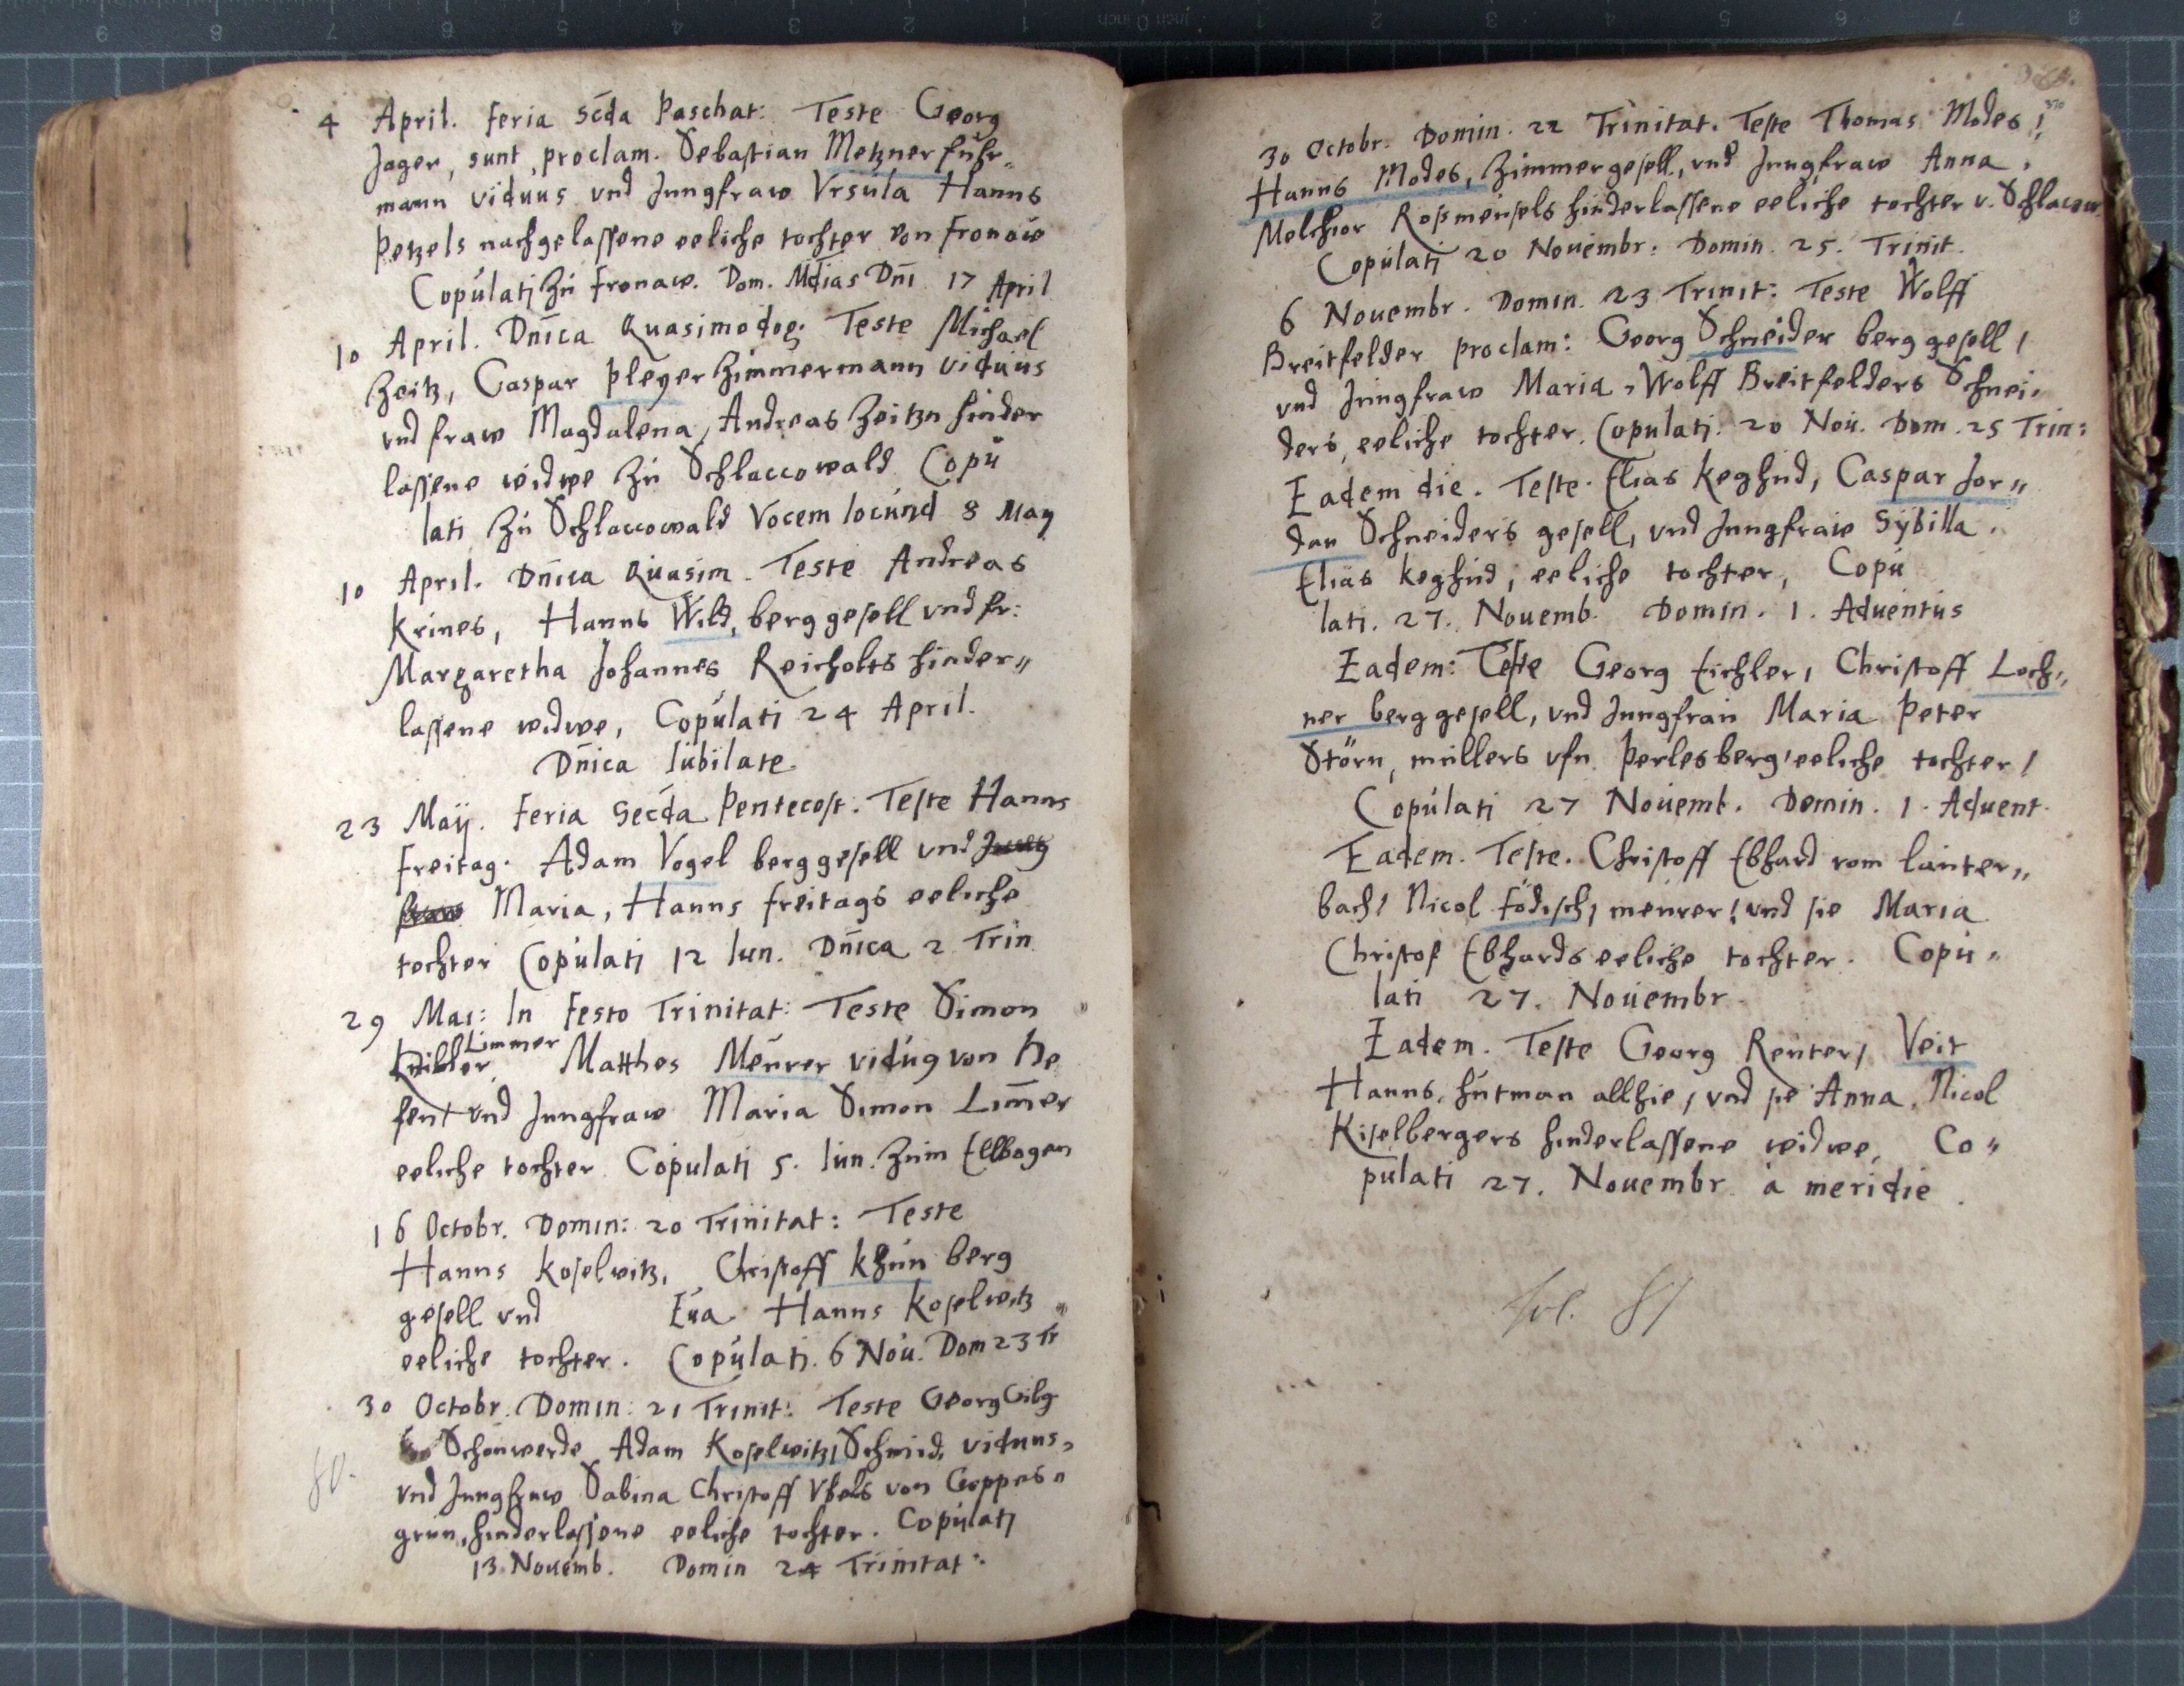 4 April. Feria scda Paschat: Teste Georg
Jager, sunt proclam. Sebastian Metzner fuhr„
mann viduus vnd Jungfraw Vrsula Hanns
Petzels nachgelassene eeliche tochter von Fronaw
Copulatj zu Fronaw. Dom. Mdias Dni 17 April
10 April. Dnica Quasimodog. Teste Michael
Zeitz, Caspar Pleyer Zimmermann viduus
vnd fraw Magdalena, Andreas Zeitzn hinder
lassene widwe zu Schlaccowald Copu
lati zu Schlaccowald Vocem Iocund 8 May
10 April. Dnica Quasim. Teste Andreas
Krines, Hanns Wild, berggesell vnd fr:
Margaretha Johannes Reicholts hinder„
lassene widwe, Copulati 24 April.
Dnica Iubilate.
23 Maij. Feria Secda Pentecost. Teste Hanns
Freitag. Adam Vogel berggesell vnd Jung
fraw Maria, Hanns Freitags eeliche
tochter Copulatj 12 Iun. Dnica 2 Trin
29 Mai: In Festo Trinitat: Teste Simon
Limmer
Matthes Meurer vidug von He
fent vnd Jungfraw Maria Simon Limer
eeliche tochter Copulatj 5. Iun. zum Ellbogen
16 Octobr. Domin: 20 Trinitat: Teste
Hanns Koselwitz, Christoff Khun berg
gesell vnd Eua Hanns Koselwitz
eeliche tochter. Copulatj. 6 Nou. Dom 23 Tr
30 Octobr. Domin: 21 Trinit: Teste Georg Gilg
Schonwerde Adam Koselwitz, Schmid, viduus,
80.
vnd Jungfraw Sabina Christoff Vhels von Goppes„
grun, hinderlassene eeliche tochter. Copulatj
13 Nouemb. Domin 24 Trinitat:
370
30 Octobr. Domin. 22 Trinitat. Teste Thomas Modes!
Hanns Modes, Zimmergesell, vnd Jungfraw Anna.
Melchior Rosmeusels hinderlassene eeliche tochter v. Schlacow.
Copulatj 20 Nouembr. Domin. 25. Trinit.
6 Nouembr. Domin. 23 Trinit: Teste Wolff
Breitfelder proclam: Georg Schneider berggesell /
vnd Jungfraw Maria, Wolff Breitfelders Schnei„
ders, eeliche tochter. Copulatj. 20 Nou. Dom. 25 Trin:
Eadem die. Teste. Elias Keghnd, Caspar Jor„
dan Schneiders gesell, vnd Jungfraw Sybilla.
Elias Keghnd, eeliche tochter, Copu
lati. 27. Nouemb. Domin. 1. Aduentus
Eadem: Teste Georg Eichler, Christoff Loch„
ner berggesell, vnd Jungfrau Maria Peter
Störn, mullers vfn Perlesberg eeliche tochter /
Copulati 27 Nouemb. Domin. 1. Aduent.
Eadem. Teste. Christoff Ebhard vom lauter„
bach / Nicol Födisch, meurer! vnd sie Maria
Christof Ebhards eeliche tochter. Copu„
lati 27. Nouembr.
Eadem. Teste Georg Reuter, Veit
Hanns, hutman allhie, vnd sie Anna, Nicol
Kiselbergers hinderlassene widwe, Co„
pulati 27. Nouembr. a meridie.
fol. 81